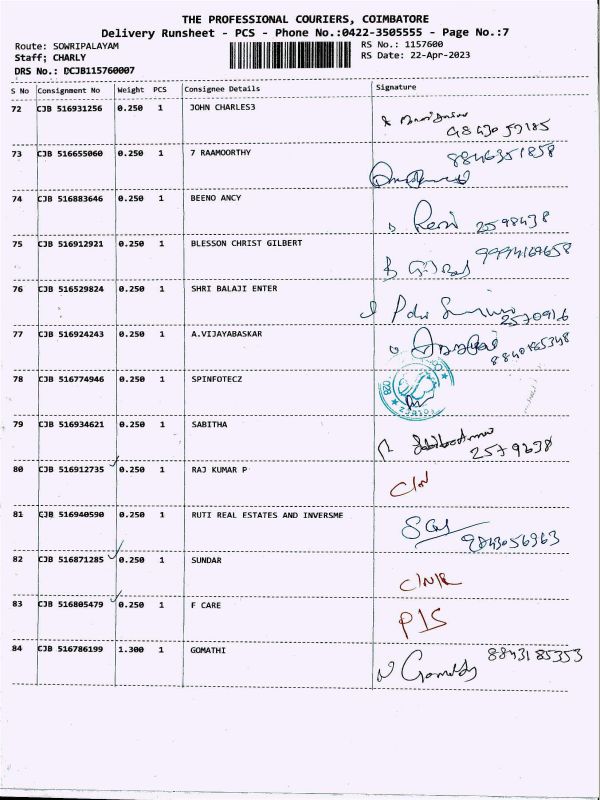 THE PROFESSIONAL COURIERS, COIMBATORE
Delivery Runsheet - PCS - Phone No.:0422-3505555 - Page No.:7
Route: SOWRIPALAYAM RS No.: 1157600
Staff; CHARLY RS Date: 22-Apr-2023
DRS No.: DCJB115760007
S No Consignment No Weight PCS Consignee Details Signature
72 CJB 516931256 0.250 1 JOHN CHARLES3
73 CJB 516655060 0.250 1 7 RAAMOORTHY 8846351858
74 CJB 516883646 0.250 1 BEENO ANCY
2598438
75 CJB 516912921 0.250 1 BLESSON CHRIST GILBERT
76 CJB 516529824 0.250 1 SHRI BALAJI ENTER
2570916
77 CJB 516924243 0.250 1 A.VIJAYABASKAR
78 CJB 516774946 0.250 1 SPINFOTECZ
79 CJB 516934621 0.250 1 SABITHA
2579638
80 CJB 516912735 0.250 1 RAJ KUMAR P
81 CJB 516940590 0.250 1 RUTI REAL ESTATES AND INVERSME
9843056963
82 CJB 516871285 0.250 1 SUNDAR
C/N/R
83 CJB 516805479 0.250 1 F CARE
P/S
84 CJB 516786199 1.300 1 GOMATHI 8843185353